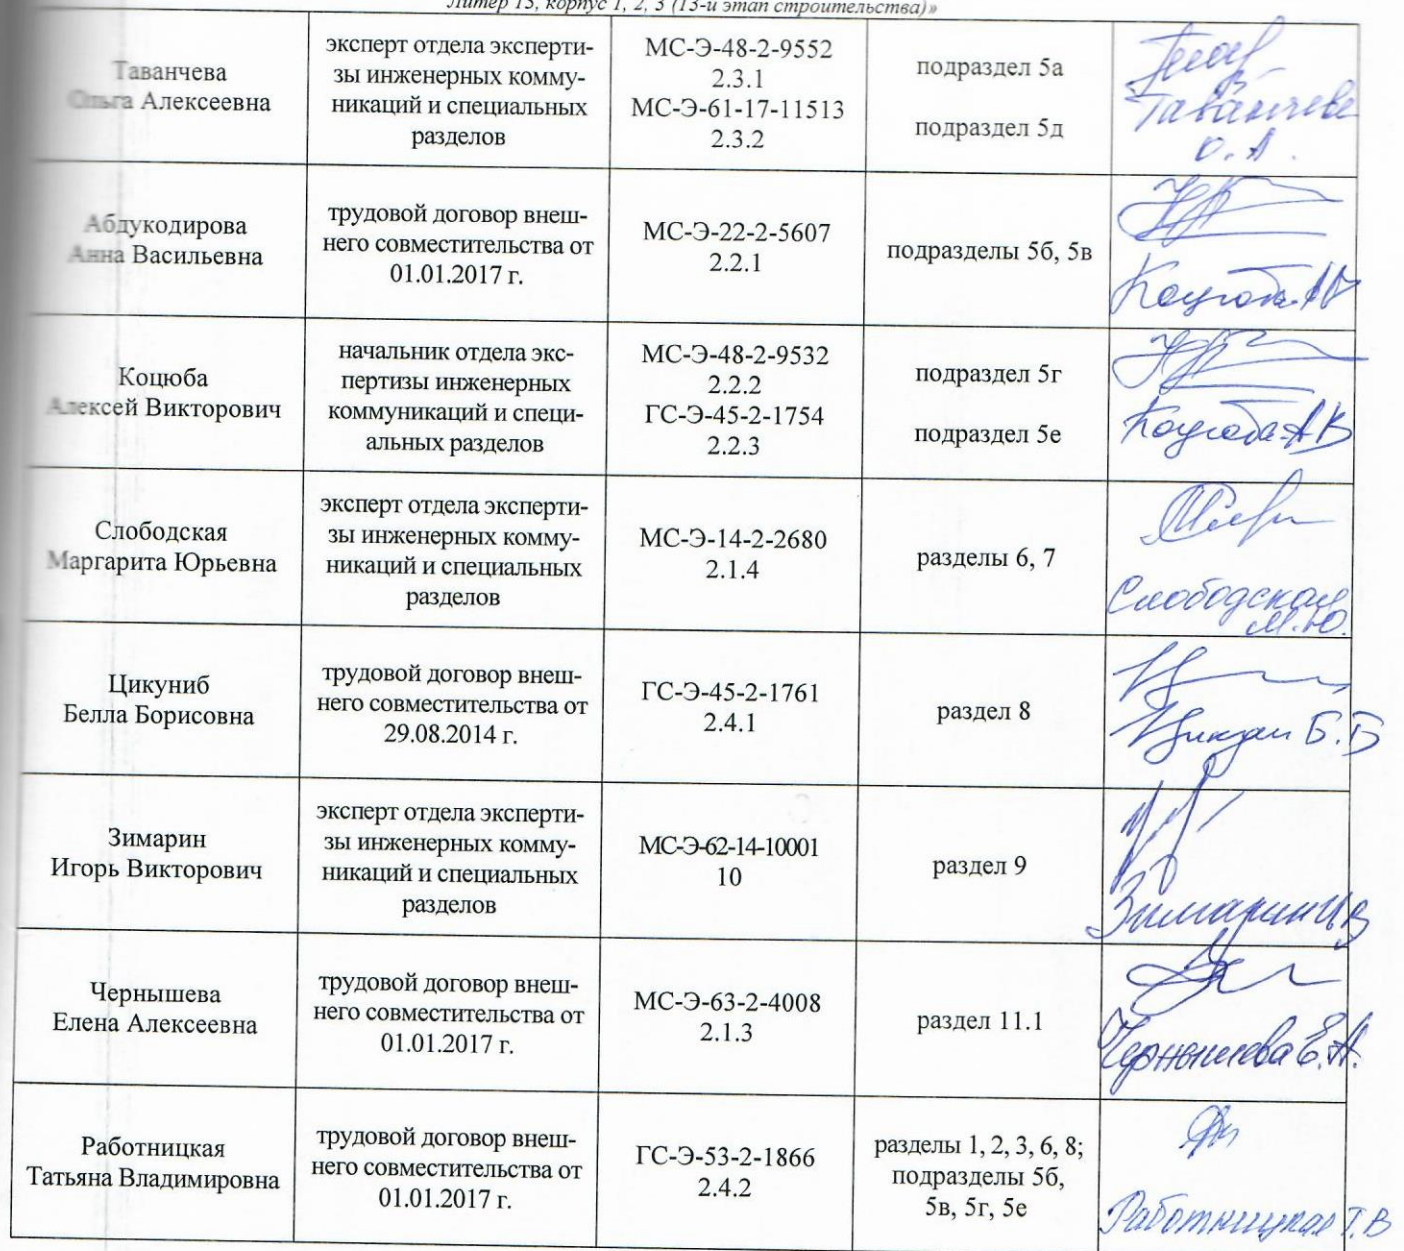 Литер 13, корпус 1, 2, 3 (13-й этап строительства)»
Таванчева
Ольга Алексеевна
эксперт отдела эксперти-
зы инженерных комму-
никаций и специальных
разделов
МС-Э-48-2-9552
2.3.1
МС-Э-61-17-11513
2.3.2
подраздел 5а
подраздел 5д
Таванчева
О.А.
Абдукодирова
Анна Васильевна
трудовой договор внеш-
него совместительства от
01.01.2017 г.
МС-Э-22-2-5607
2.2.1
подразделы 5б, 5в
Коцюба АВ
Коцюба
Алексей Викторович
начальник отдела экс-
пертизы инженерных
коммуникаций и специ-
альных разделов
МС-Э-48-2-9532
2.2.2
ГС-Э-45-2-1754
2.2.3
подраздел 5г
подраздел 5е
Коцюба АВ
Слободская
Маргарита Юрьевна
эксперт отдела эксперти-
зы инженерных комму-
никаций и специальных
разделов
МС-Э-14-2-2680
2.1.4
разделы 6, 7
Слободская
М.Ю.
Цикуниб
Белла Борисовна
трудовой договор внеш-
него совместительства от
29.08.2014 г.
ГС-Э-45-2-1761
2.4.1
раздел 8
Б.Б
Зимарин
Игорь Викторович
эксперт отдела эксперти-
зы инженерных комму-
никаций и специальных
разделов
МС-Э-62-14-10001
10
раздел 9
Зимарин ИВ
Чернышева
Елена Алексеевна
трудовой договор внеш-
него совместительства от
01.01.2017 г.
МС-Э-63-2-4008
2.1.3
раздел 11.1
Чернышева Е.А.
Работницкая
Татьяна Владимировна
трудовой договор внеш-
него совместительства от
01.01.2017 г.
ГС-Э-53-2-1866
2.4.2
разделы 1, 2, 3, 6, 8;
подразделы 5б,
5в, 5г, 5е
Работницкая Т.В